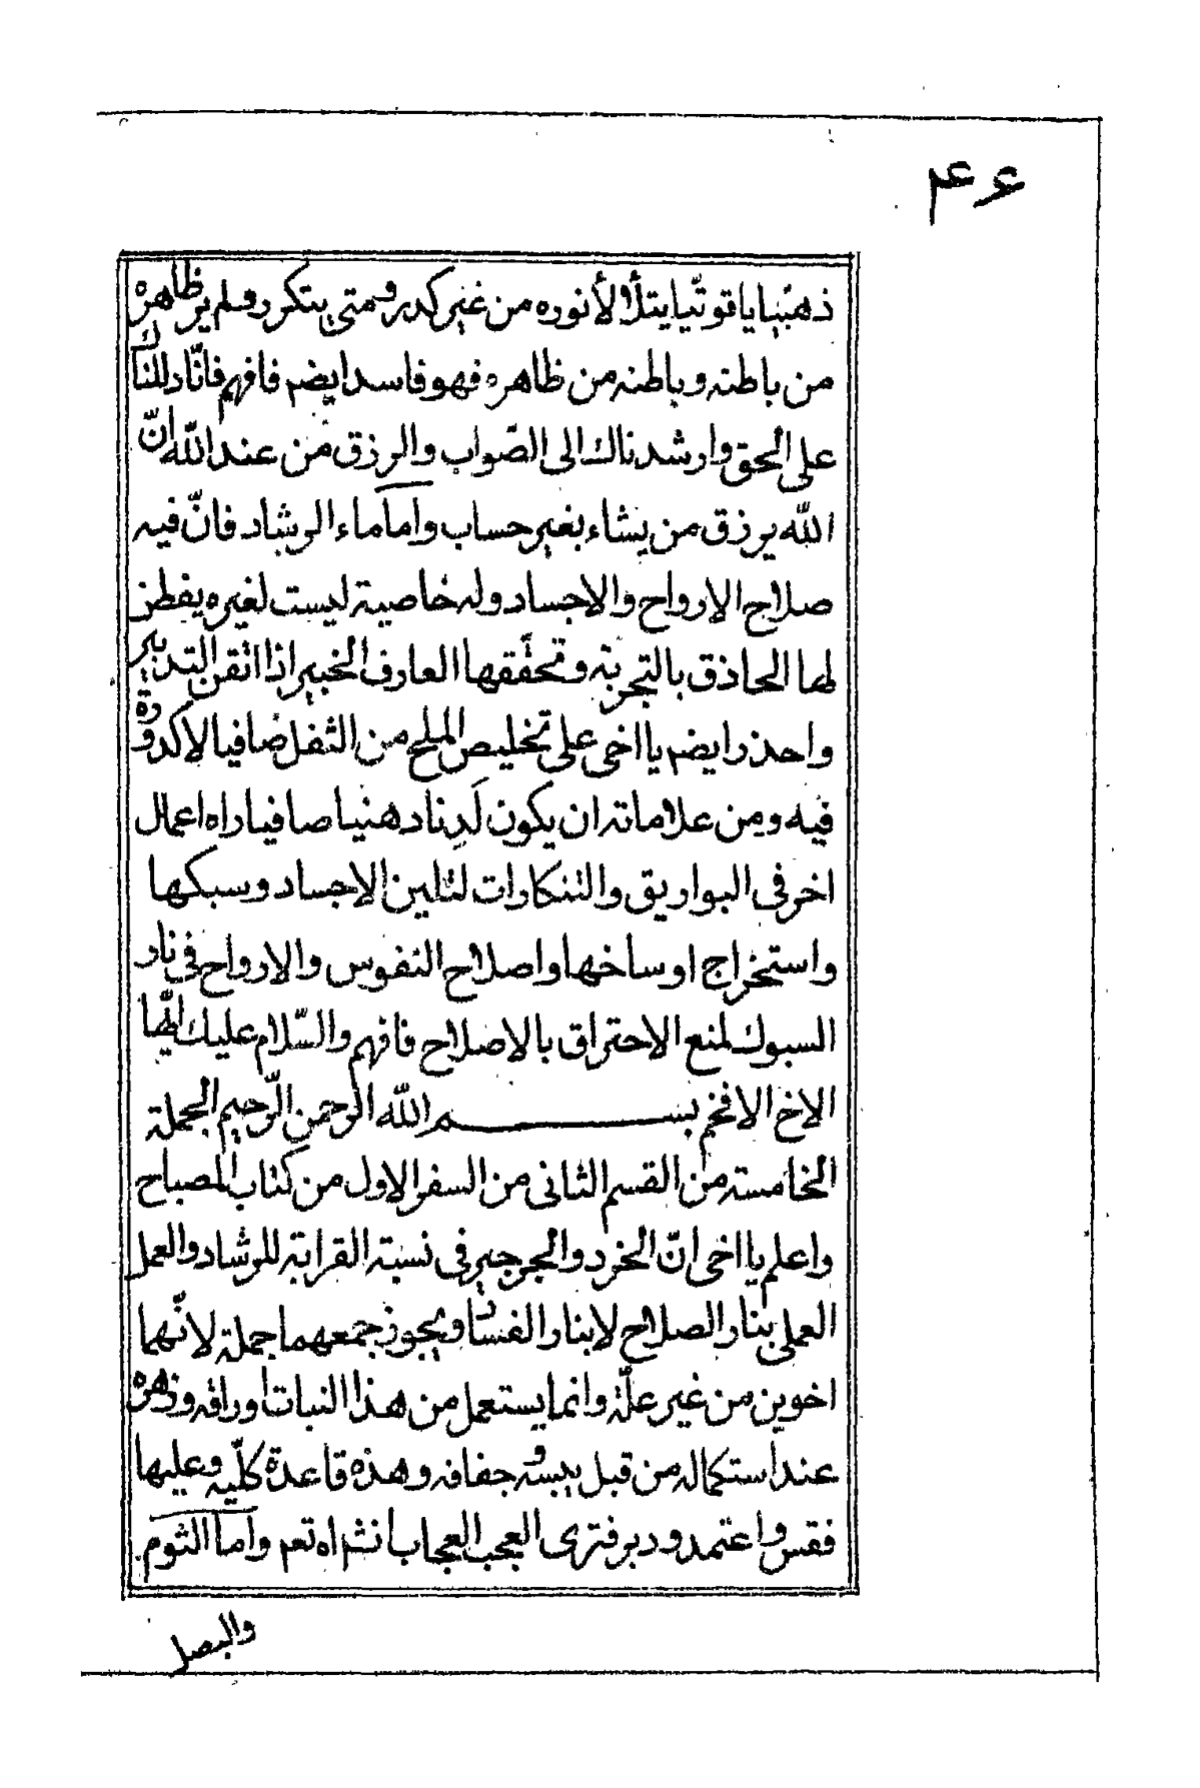 ۴۶
ذهبيا ياقوتيّا يتلألأ نوره من غير كدر ومتى يتكرر ولم ير ظاهره
من باطنه وباطنه من ظاهره فهو فاسد ايضم فافهم فانّا دللناك
على الحق وارشدناك الى الصّواب والرزق من عند الله انّ
الله يرزق من يشاء بغير حساب واما ماء الرشاد فانّ فيه
صلاح الارواح والاجساد وله خاصية ليست لغيره يفطن
لها الحاذق بالتجربة وتحقّقها العارف الخبير اذا اتقن التدبير
واحذر ايضم يا اخى على تخليص الملح من الثفل صافيا لا كدورة
فيه ومن علاماته ان يكون لَدِنا دهنيا صافيا راه اعمال
اخر فى البواريق والتنكارات لتلين الاجساد وسبكها
واستخراج اوساخها واصلاح النفوس والارواح فى نار
السبوك لمنع الاحتراق بالاصلاح فافهم والسّلام عليك ايّها
الاخ الافخم بســـم الله الرحمن الرّحيم الجملة
الخامسة من القسم الثانى من السفر الاول من كتاب المصباح
واعلم يا اخى انّ الخرد والجرجير فى نسبة القرابة للرشاد والعمل
العملى بنار الصلاح لا بنار الفساد ويجوز جمعهما جملة لانّهما
اخوين من غير علّة وانما يستعمل من هذا النبات اوراقه وزهره
عند استكماله من قبل يبسه وجفافه وهذه قاعدة كلّيه وعليها
فقس واعتمد ودبر فترى العجب العجاب انشاه تعم واما الثوم
والبصل